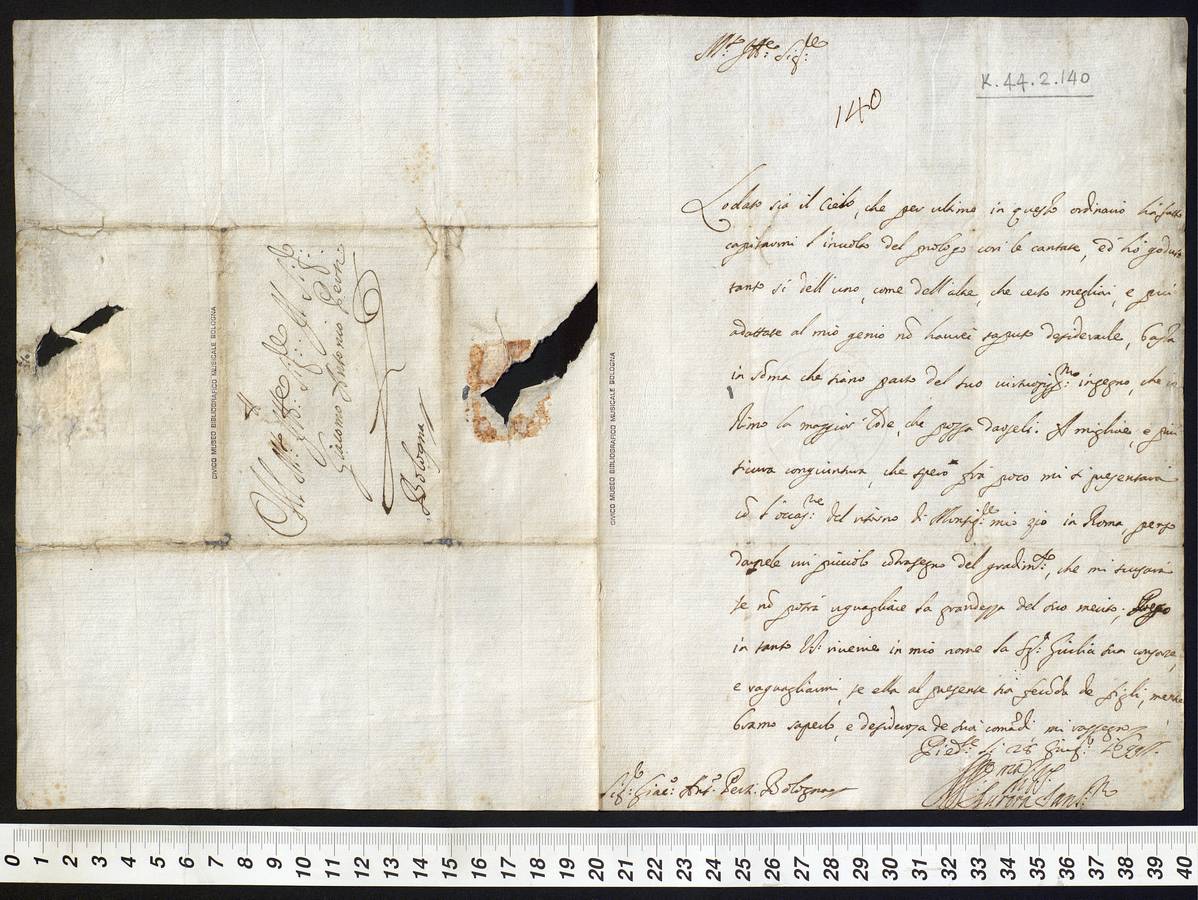 K.44.2.140
140
Lodato sia il Cielo, che per ultimo in questo ordinario hà fatto
capitarmi l'inuolto del prologo con le cantate, ed hò goduto
tanto sì dell'uno, come dell'altre, che certo megliori, e più
adattate al mio genio nõ haurei saputo desiderarle, basta
in sõma che siano parto del suo uirtuosiss.mo ingegno, che
stimo la maggior lode, che possa darseli. A migliore, e più
sicura congiuntura, che spero frà poco mi si presentarà
cõ l'occas.ne del ritorno di Monsig.re mio zio in Roma, penso
darle un picciolo cõtrasegno del gradim.to, che mi scusarà
se nõ potrà uguagliare la grandezza del suo merito. Prego
in tanto V.S. riuerire in mio nome la Sig.ra Giulia sua consorte,
e raguagliarmi, se ella al presente sia fecõda de figli, mentre
bramo saperlo, e desiderosa de suoi comãdi mi rassegno
Aurora San
Sig.r Giac.o Ant.o Perti Bologna
Giacomo Antonio Perti
Bologna
CIVICO MUSEO BIBLIOGRAFICO MUSICALE BOLOGNA
CIVICO MUSEO BIBLIOGRAFICO MUSICALE BOLOGNA
0 1 2 3 4 5 6 7 8 9 10 11 12 13 14 15 16 17 18 19 20 21 22 23 24 25 26 27 28 29 30 31 32 33 34 35 36 37 38 39 40